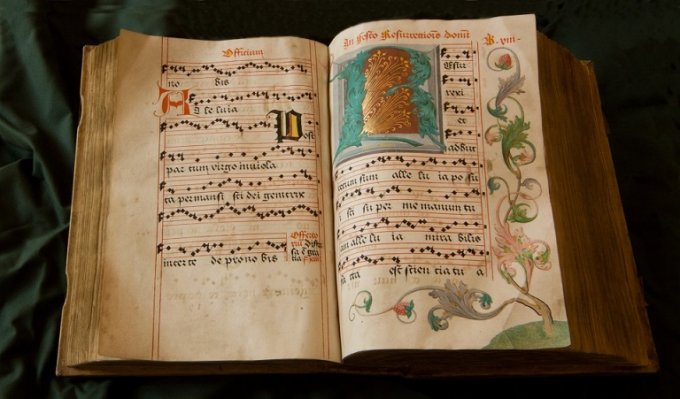 Officium
no bis
Al le luia
Post
par tum virgo inviola
ta permansi sti dei genitrix
interce de pro no bis
In festo Resurrectionis
Resur
rexi
et
adhuc
tecum sum alle lu ia po su
i sti su per me manum tu
am alle lu ia mira bilis
fa cta est scien tia tu a